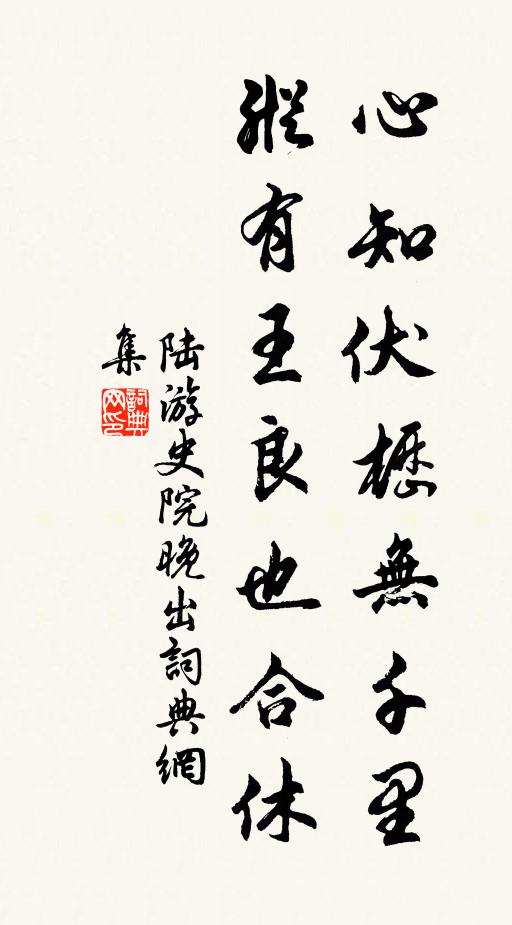 心知伏櫪無千里
縱有王良也合休
陸游史院晚出詞典網
集
詞典網印